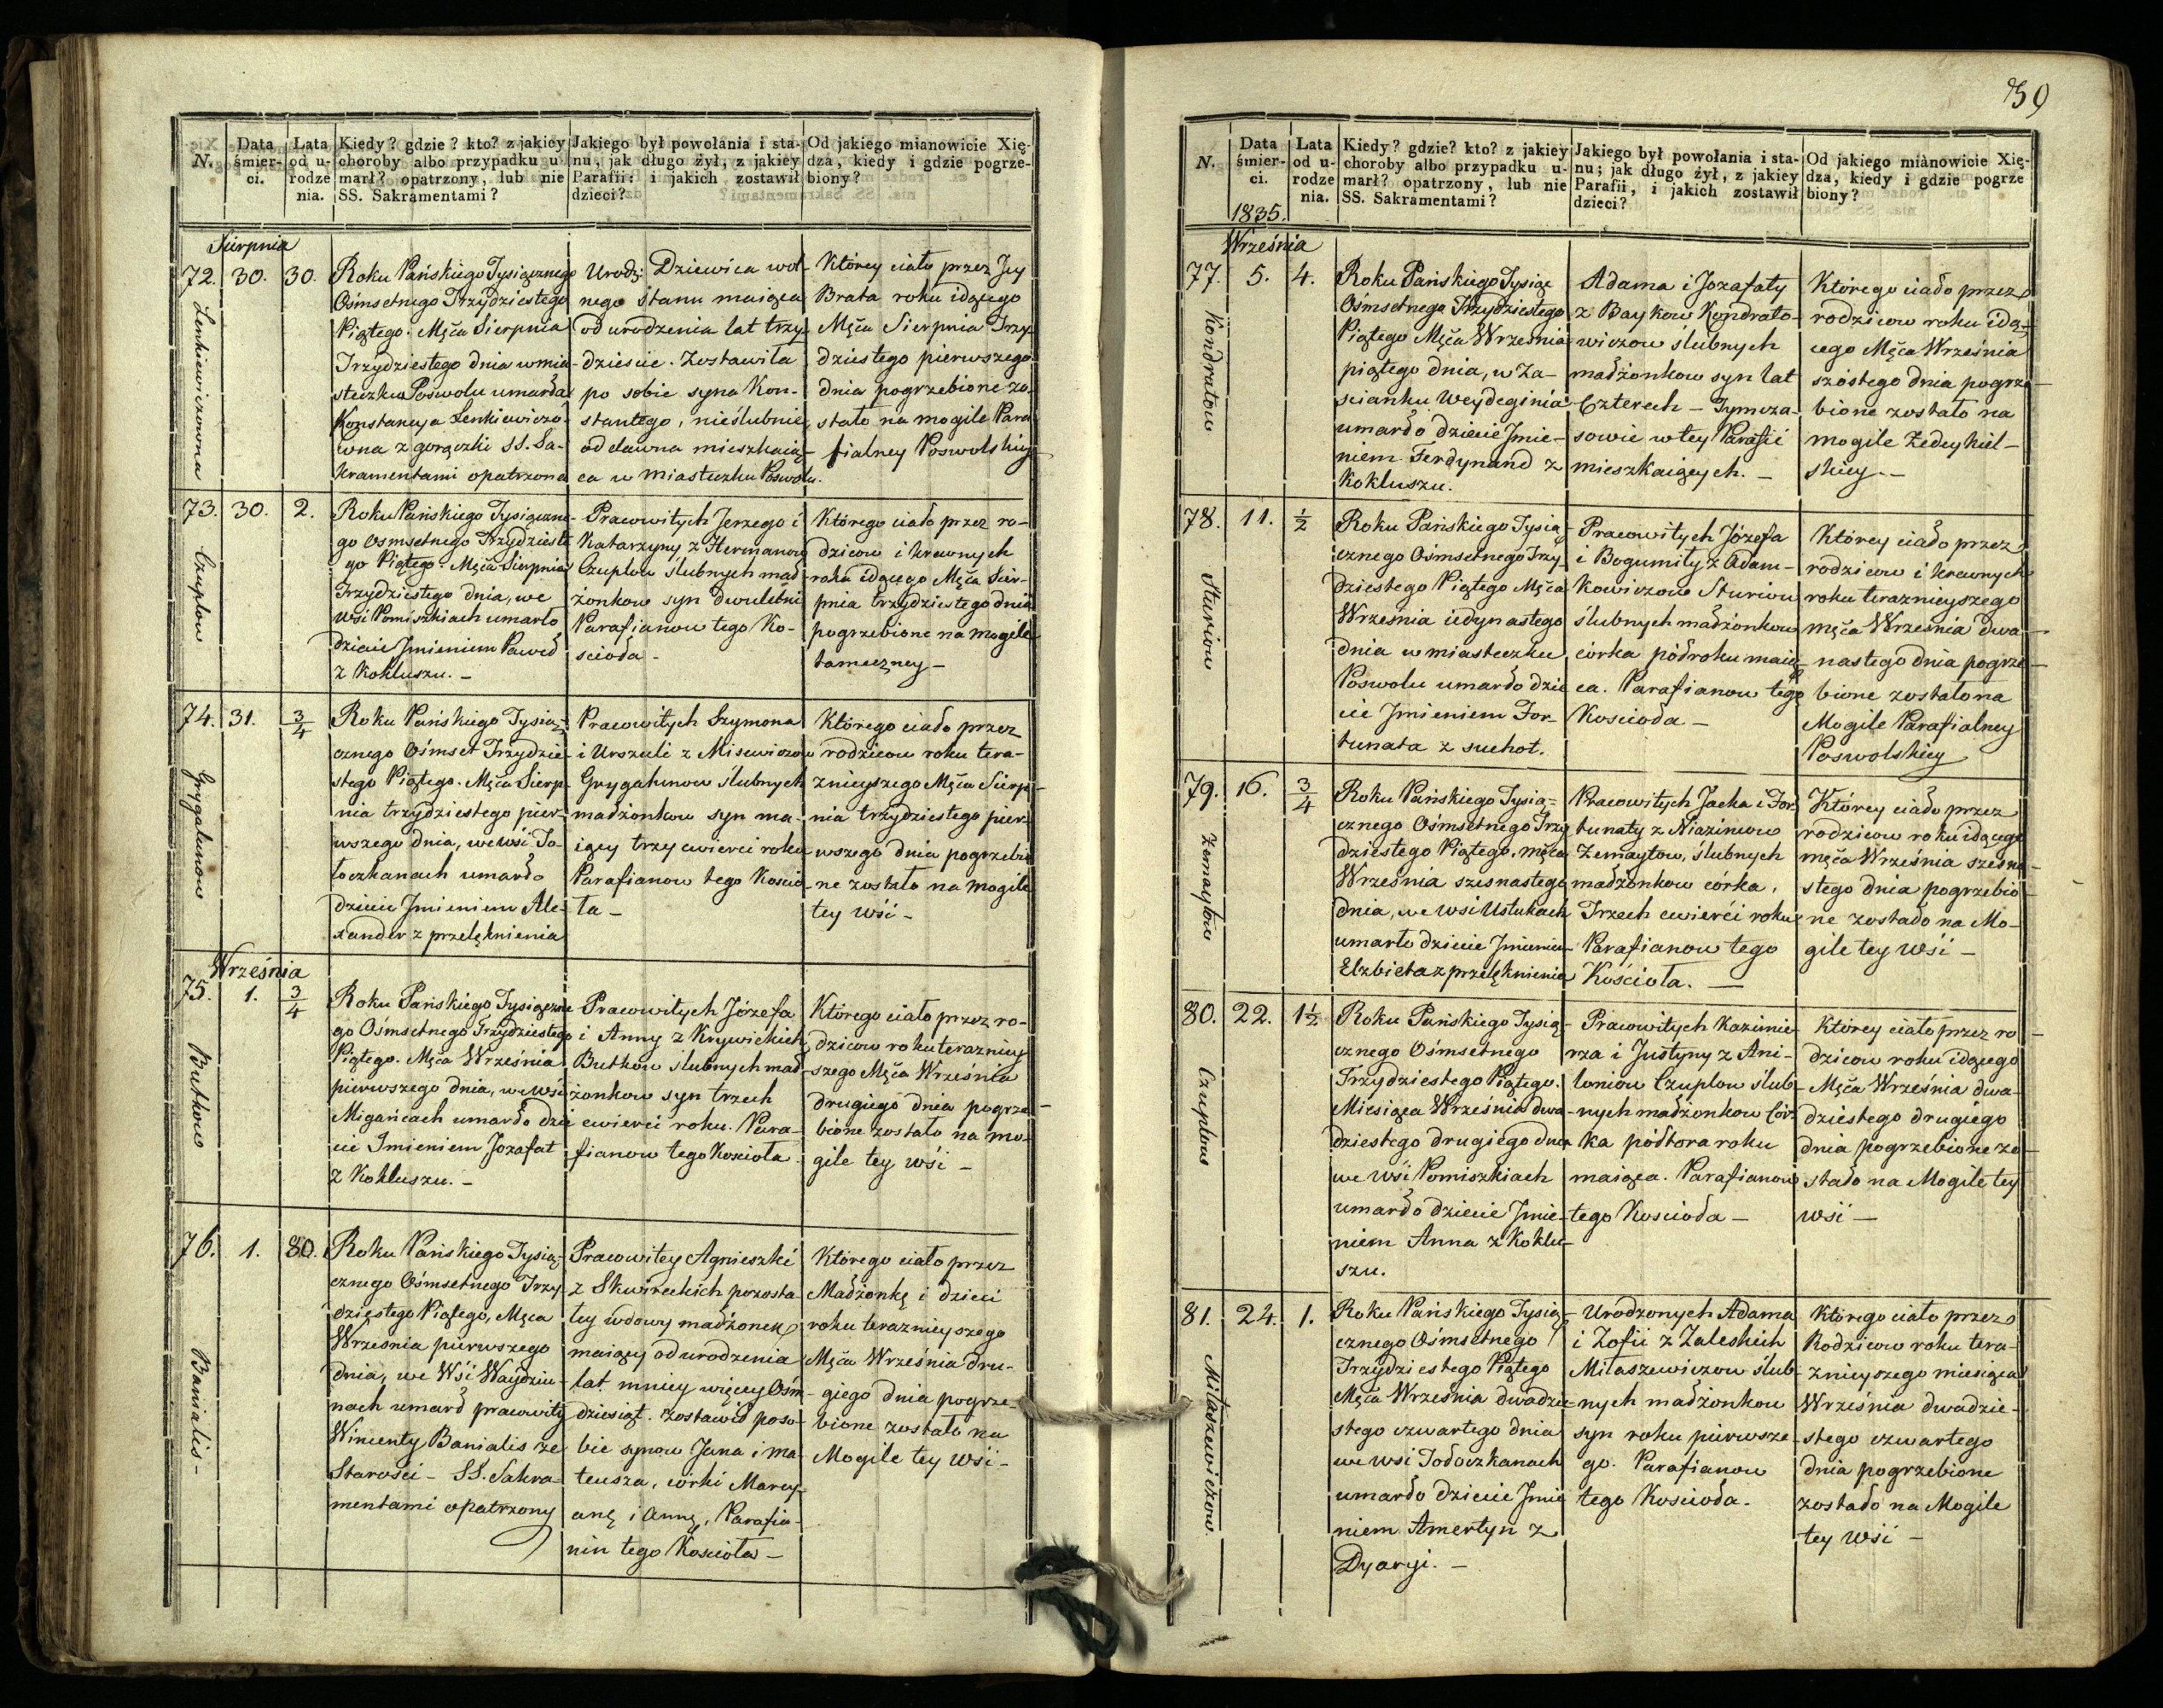 N.
Data śmierci.
Lata od urodzenia.
Kiedy? gdzie? kto? z jakiey
choroby albo przypadku u-
marł? opatrzony, lub nie
SS. Sakramentami?
Jakiego był powołania i sta-
nu, jak długo żył, z jakiey
Parafii: i jakich zostawił
dzieci?
Od jakiego mianowicie Xię-
dza, kiedy i gdzie pogrze-
biony?
Sierpnia
72. 30. 30.
Lenkiewiczowna
Roku Pańskiego Tysiącznego
Ośmsetnego Trzydziestego
Piątego. Męca Sierpnia
Trzydziestego dnia w mia-
steczku Poswolu umarła
Konstancya Lenkiewiczo-
wna z gorączki SS. Sa-
kramentami opatrzona
Urodz: Dziewica wol-
nego stanu maiąca
od urodzenia lat trzy-
dzieście. Zostawiła
po sobie syna Kon-
stantego, nieślubnie,
od dawna mieszkaią-
ca w Miasteczku Poswolu.
Którey ciało przez Jey
Brata roku idącego
Męca Sierpnia Trzy-
dziestego pierwszego
dnia pogrzebione zo-
stało na mogile Para-
fialney Poswolskiey
73. 30. 2.
Czuplow
Roku Pańskiego Tysiączne-
go Osmsetnego Trzydzieste
go Piątego. Męca Sierpnia
Trzydziestego dnia, we
wsi Pomiszkiach umarło
dziecie Jmieniem Paweł
z Kokluszu. -
Pracowitych Jerzego i
Katarzyny z Hermanow
Czuplow ślubnych mał-
żonkow syn dwuletni
Parafianow tego Ko-
scioła -
Którego ciało przez ro-
dzicow i krewnych
roku idącego Męca Sier-
pnia trzydziestego dnia
pogrzebione na mogile
tameczney -
74. 31. 3/4
Grygalunow
Roku Pańskiego Tysią-
cznego Ośmset Trzydzie-
stego Piątego. Męca Sierp-
nia trzydziestego pier-
wszego dnia, we wsi To-
toczkanach umarło
dziecie Jmieniem Ale-
xander z przelęknienia
Pracowitych Szymona
i Urszuli z Misewiczow
Grygalunow ślubnych
małżonkow syn ma-
iący trzy cwierci roku
Parafianow tego Koscio-
ła -
Którego ciało przez
rodzicow roku tera-
znieyszego Męca Sierp-
nia trzydziestego pier-
wszego dnia pogrzebio-
ne zostało na mogile
tey wśi -
Września
75. 1. 3/4
Butkow
Roku Pańskiego Tysiączne
go Ośmsetnego Trzydziestego
Piątego. Męca Września
pierwszego dnia, we wsi
Migańcach umarło dzie
cie Imieniem Jozafat
z Kokluszu. -
Pracowitych Józefa
i Anny z Krywickich
Butkow ślubnych mał-
żonkow syn trzech
cwierci roku. Para-
fianow tego Kościoła
Którego ciało przez ro-
dzicow roku terazniey
szego Męca Września
drugiego dnia pogrze-
bione zostało na mo-
gile tey wśi -
76. 1. 80.
Banialis -
Roku Pańskiego Tysią-
cznego Ośmsetnego Trzy-
dziestego Piątego, Męca
Wrzesnia pierwszego
dnia, we Wśi Waydziu-
nach umarł pracowity
Wincenty Banialis ze
Starości - SS. Sakra-
mentami opatrzony
Pracowitey Agnieszki
z Skwireckich pozosta
łey wdowy małżonek
maiący od urodzenia
lat mniey więcey Ośm-
dziesiąt. zostawił po so-
bie synow Jana i Ma-
teusza, córki Mary-
anę i Annę, Parafia-
nin tego Kościoła -
Którego ciało przez
Małżonkę i dzieci
roku teraznieyszego
Męca Września dru-
giego dnia pogrze-
bione zostało na
Mogile tey Wśi -
39
N.
Data śmierci.
1835.
Lata od urodzenia.
Kiedy? gdzie? kto? z jakiey
choroby albo przypadku u-
marł? opatrzony, lub nie
SS. Sakramentami?
Jakiego był powołania i sta-
nu; jak długo żył, z jakiey
Parafii, i jakich zostawił
dzieci?
Od jakiego mianowicie Xię-
dza, kiedy i gdzie pogrze
biony?
Września
77. 5. 4.
Kondratow
Roku Pańskiego Tysiąc
Ośmsetnego Trzydziestego
Piątego Męca Września
piątego dnia, w Za-
scianku Weydeginia
umarło dziecie Jmie-
niem Ferdynand z
Kokluszu.
Adama i Jozafaty
z Baykow Kondrato-
wiczow ślubnych
małżonkow syn lat
Czterech - Tymcza-
sowie w tey Parafii
mieszkaiących. -
Którego ciało przez
rodzicow roku idą-
cego Męca Września
szóstego dnia pogrze-
bione zostało na
mogile Zedeykiel-
skiey. -
78. 11. 1/2
Sturiow
Roku Pańskiego Tysią
cznego Ośmsetnego Trzy
dziestego Piątego Męca
Września iedynastego
dnia w miasteczku
Poswolu umarło dzie
cie Jmieniem For-
tunata z suchot.
Pracowitych Józefa
i Bogumiły z Adam-
kowiczow Sturiow
ślubnych małżonkow
córka półroku maią
ca. Parafianow tego
Koscioła -
Którey ciało przez
rodzicow i krewnych
roku teraznieyszego
męca Września dwa-
nastego dnia pogrze-
bione zostało na
Mogile Parafialney
Poswolskiey
79. 16. 3/4
Zemaytow
Roku Pańskiego Tysią=
cznego Ośmsetnego Trzy
dziestego Piątego, męca
Września szesnastego
dnia, we wsi Ustukach
umarło dziecie Jmieniem
Elzbieta z przelęknienia
Pracowitych Jacka i For
tunaty z Niazimow
Zemaytow, ślubnych
małżonkow córka,
Trzech cwierći roku,
Parafianow tego
Kościoła. -
Którey ciało przez
rodzicow roku idącego
męca Września szesna-
stego dnia pogrzebio-
ne zostało na Mo-
gile tey Wśi -
80. 22. 1 1/2
Czuplow
Roku Pańskiego Tysią-
cznego Ośmsetnego
Trzydziestego Piątego.
Miesiąca Września dwa-
dziestego drugiego dnia
we wśi Pomiszkiach
umarło dziecie Jmie-
niem Anna z Koklu-
szu.
Pracowitych Kazimie
rza i Justyny z Ani-
loniow Czuplow ślub-
nych małżonkow Cór
ka półtora roku
maiąca. Parafianow
tego Koscioła -
Którey ciało przez ro
dzicow roku idącego
Męca Września dwa-
dziestego drugiego
dnia pogrzebione zo-
stało na Mogile tey
wsi -
81. 24. 1.
Mitaszewiczow.
Roku Pańskiego Tysią-
cznego Ośmsetnego
Trzydziestego Piątego
Męca Września dwadzie-
stego czwartego dnia
we wsi Todoczkanach
umarło dziecie Jmie
niem Amertyn z
Dyaryi. -
Urodzonych Adama
i Zofii z Zaleskich
Mitaszewiczow ślub-
nych małżonkow
syn roku pierwsze-
go. Parafianow
tego Koscioła.
Którego ciało przez
Rodzicow roku tera-
znieyszego miesiąca
Września dwadzie-
stego czwartego
dnia pogrzebione
zostało na Mogile
tey wsi -